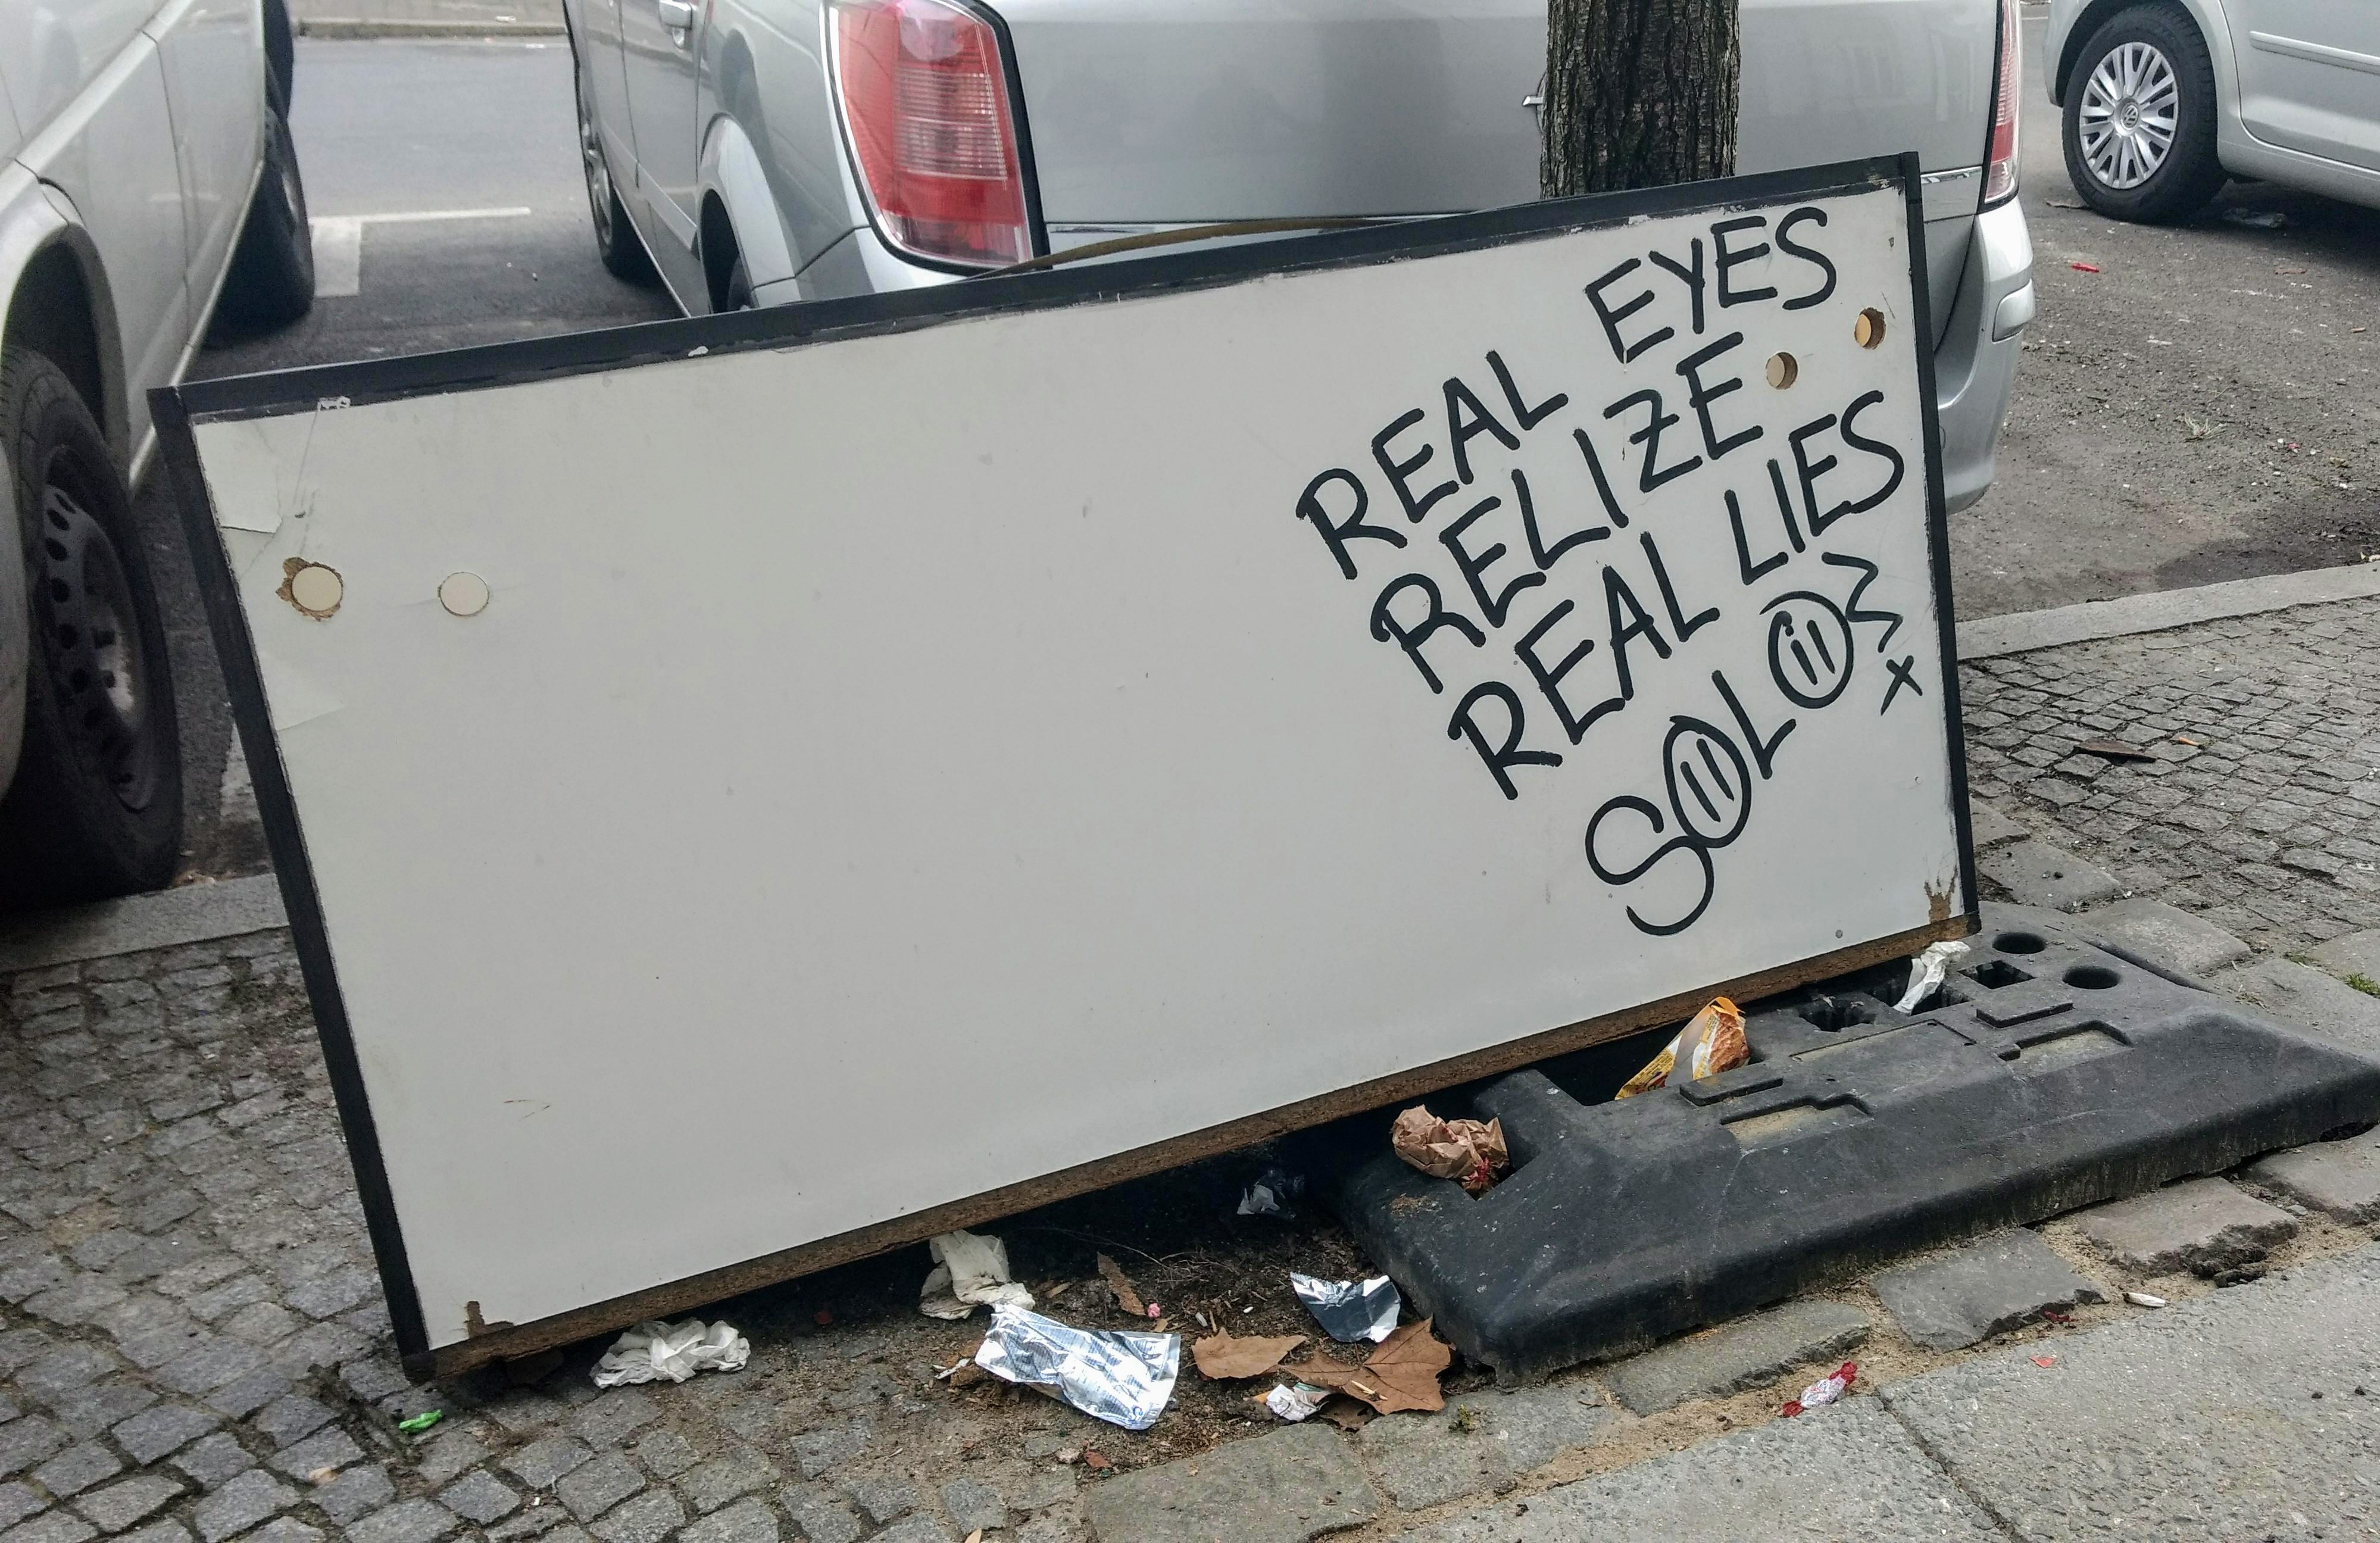 REAL EYES
RELIZE
REAL LIES
SOLO